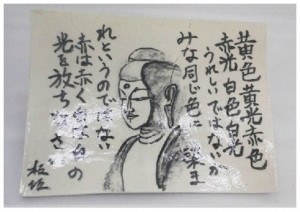 黄色黄光赤色
赤光 白色白光
うれしいではないか
みな同じ色に
染ま
れというのではない
赤は赤く白は白の
光を放ちなさい